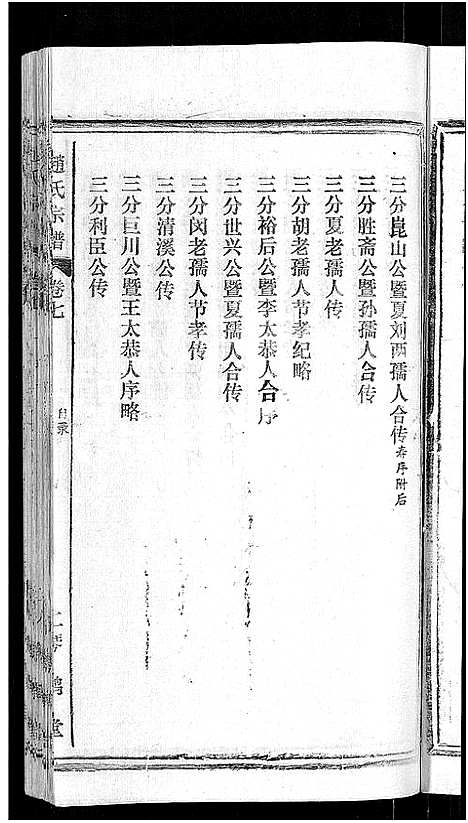 三分崑山公暨夏刘两孺人合传寿序附后
三分胜斋公暨孙孺人合传
三分夏老孺人传
三分胡老孺人节孝纪略
三分裕后公暨李太恭人合序
三分世兴公暨夏孺人合传
三分闵老孺人节孝传
三分清溪公传
三分巨川公暨王太恭人序略
三分利臣公传
赵氏宗谱
卷七
目录
琴鹤堂